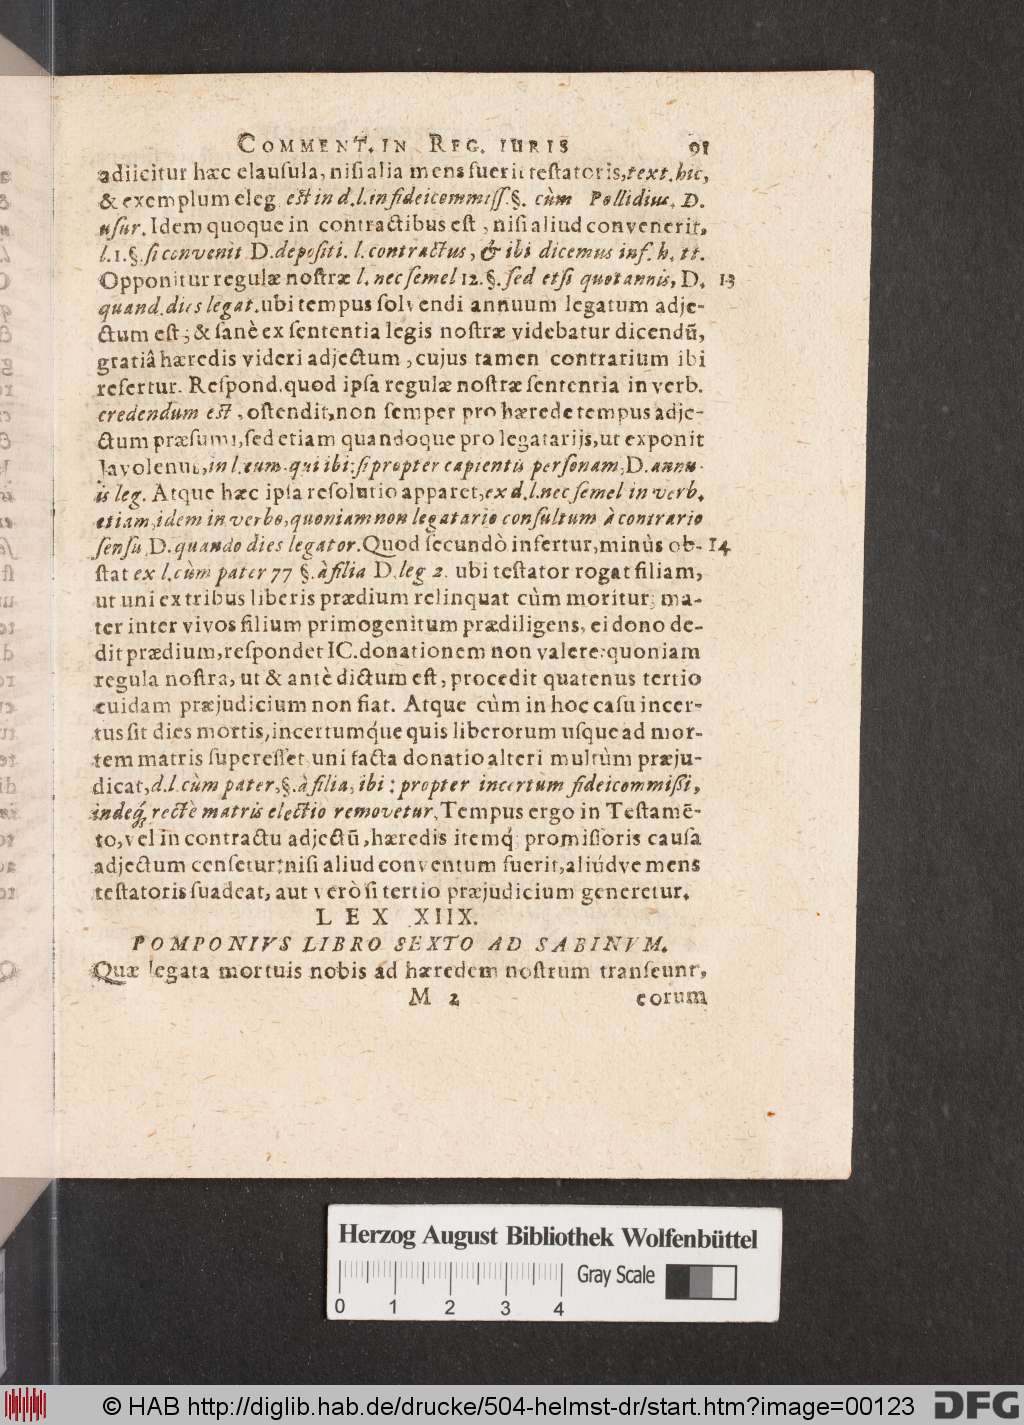 COMMENT. IN REG. IURIS 91
adiicitur hæc clausula, nisi alia mens fuerit testatoris, text. hic,
& exemplum eleg est in d. l. in fideicommiss. §. cùm Pollidius, D.
usur. Idem quoque in contractibus est, nisi aliud convenerit,
l. 1. §. si convenit D. depositi. l. contractus, & ibi dicemus inf. h. tt.
Opponitur regulæ nostræ l. nec semel 12. §. sed etsi quotannis, D. 13
quand. dies legat. ubi tempus solvendi annuum legatum adje-
ctum est; & sanè ex sententia legis nostræ videbatur dicendũ,
gratiâ hæredis videri adjectum, cujus tamen contrarium ibi
refertur. Respond. quod ipsa regulæ nostræ sententia in verb.
credendum est, ostendit, non semper pro hærede tempus adje-
ctum præsumi, sed etiam quandoque pro legatarijs, ut exponit
Javolenus, in l. cum qui ibi: si propter capientis personam, D. annu-
is leg. Atque hæc ipsa resolutio apparet, ex d. l. nec semel in verb.
etiam, idem in verbo, quoniam non legatario consultum à contrario
sensu D. quando dies legator. Quod secundò infertur, minùs ob- 14
stat ex l. cùm pater 77 §. à filia D. leg 2. ubi testator rogat filiam,
ut uni ex tribus liberis prædium relinquat cùm moritur; ma-
ter inter vivos filium primogenitum prædiligens, ei dono de-
dit prædium, respondet IC. donationem non valere: quoniam
regula nostra, ut & antè dictum est, procedit quatenus tertio
cuidam præjudicium non fiat. Atque cùm in hoc casu incer-
tus sit dies mortis, incertumq́ue quis liberorum usque ad mor-
tem matris superesset, uni facta donatio alteri multùm præju-
dicat, d. l. cùm pater, §. à filia, ibi: propter incertum fideicommissi,
indeq́; rectè matris electio removetur, Tempus ergo in Testamẽ-
to, vel in contractu adjectũ, hæredis itemq́; promissoris causa
adjectum censetur: nisi aliud conventum fuerit, aliúdve mens
testatoris suadeat, aut verò si tertio præjudicium generetur.
LEX XIIX.
POMPONIVS LIBRO SEXTO AD SABINVM.
Quæ legata mortuis nobis ad hæredem nostrum transeunt,
M 2 eorum
Herzog August Bibliothek Wolfenbüttel
Gray Scale
0 1 2 3 4
© HAB http://diglib.hab.de/drucke/504-helmst-dr/start.htm?image=00123
DFG